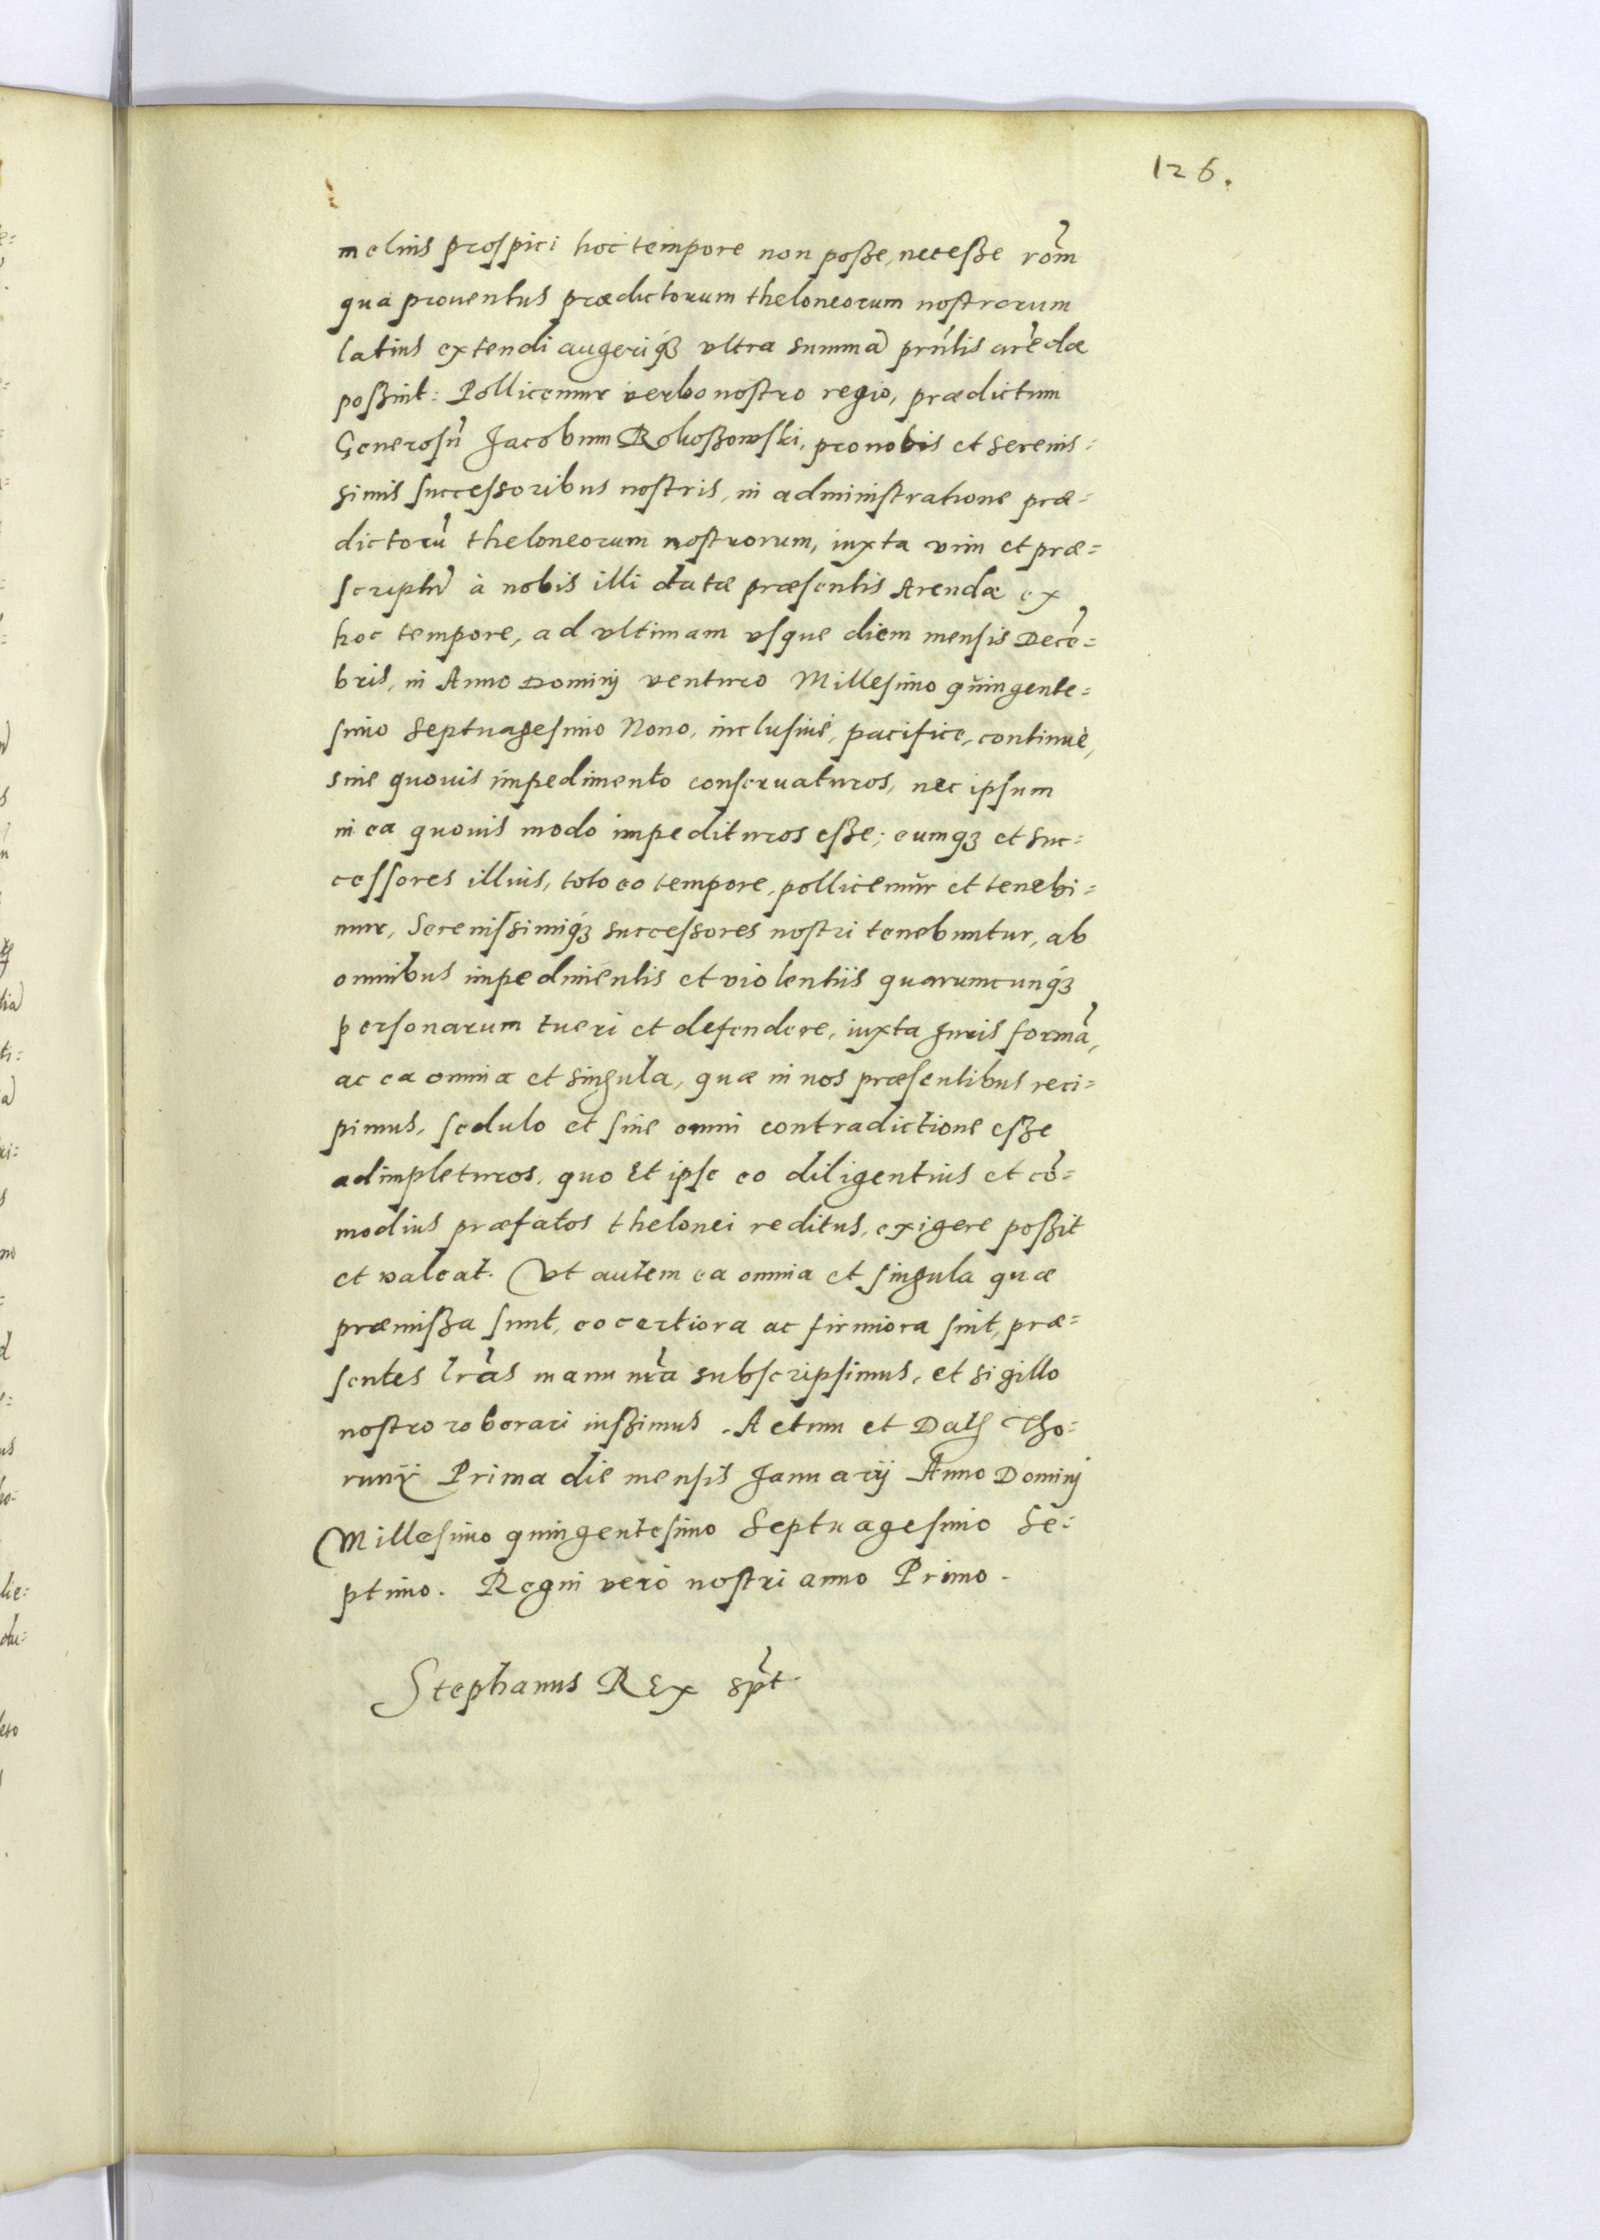 126.
melius prospici hoc tempore non poße, neceße rom̃
qua prouentus prædictorum theloneorum nostrorum
latius extendi augeriq3 vltra summã prñtis arẽdæ
poßint: Pollicemur verbo nostro regio, prædictum
Generosũ Jacobum Rokoßowski, pro nobis et serenis:
simis successoribus nostris, in administratione præ=
dictorũ theloneorum nostrorum, iuxta vim et præ=
scriptũ à nobis illi datæ præsentis Arendæ ex
hoc tempore, ad vltimam vsque diem mensis Decẽ=
bris, in Anno Dominj venturo Millesimo quingente=
simo Septuagesimo Nono, inclusiuè, pacificè, continuè,
sine quouis impedimento conseruaturos, nec ipsum
in ea quouis modo impedituros eße; eumq3 et suc=
cessores illius, toto eo tempore, pollicemur et tenebi=
mur, Serenissimiq3 successores nostri tenebuntur, ab
omnibus impedimentis et violentiis quarumcunq3
personarum tueri et defendere, iuxta Juris formã,
ac ea omnia et singula, quæ in nos præsentibus reci=
pimus, sedulo et sine omni contradictione eße
adimpleturos, quo et ipse eo diligentius et cõ=
modius præfatos thelonei reditus, exigere poßit
et valeat. Vt autem ea omnia et singula quæ
præmißa sunt, eo certiora ac firmiora sint, præ=
sentes lr̃as manu nr̃a subscripsimus, et sigillo
nostro roborari iußimus. Actum et Datum Tho=
runÿ Prima die mensis Januarij Anno Dominj
Millesimo quingentesimo Septuagesimo Se=
ptimo. Regni verò nostri anno Primo.
Stephanus Rex sp̃t.